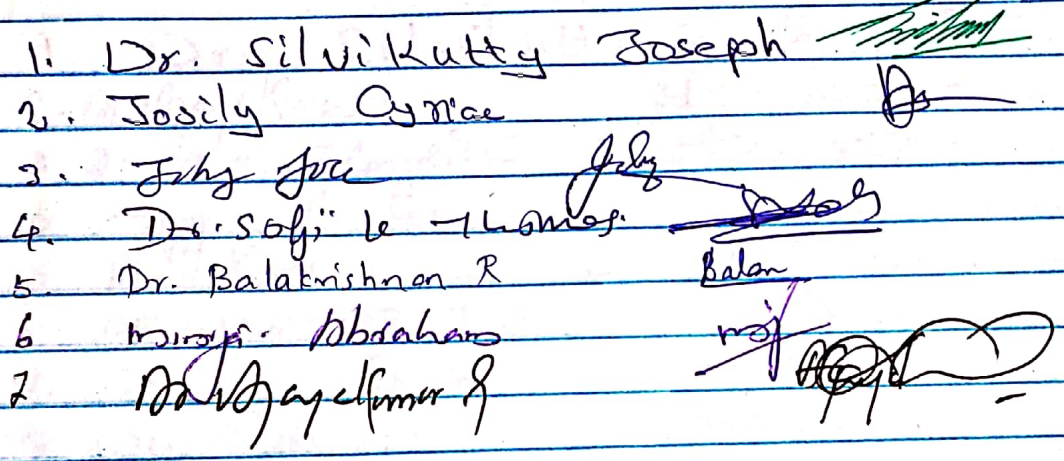 1. Dr. Silvikutty Joseph
2. Josily Cyriac
3. Joby Jose Joby
4. Dr. Sojji K Thomas.
5. Dr. Balakrishnan R Balan
6 Abraham
7 Dr. Vijayakumar R